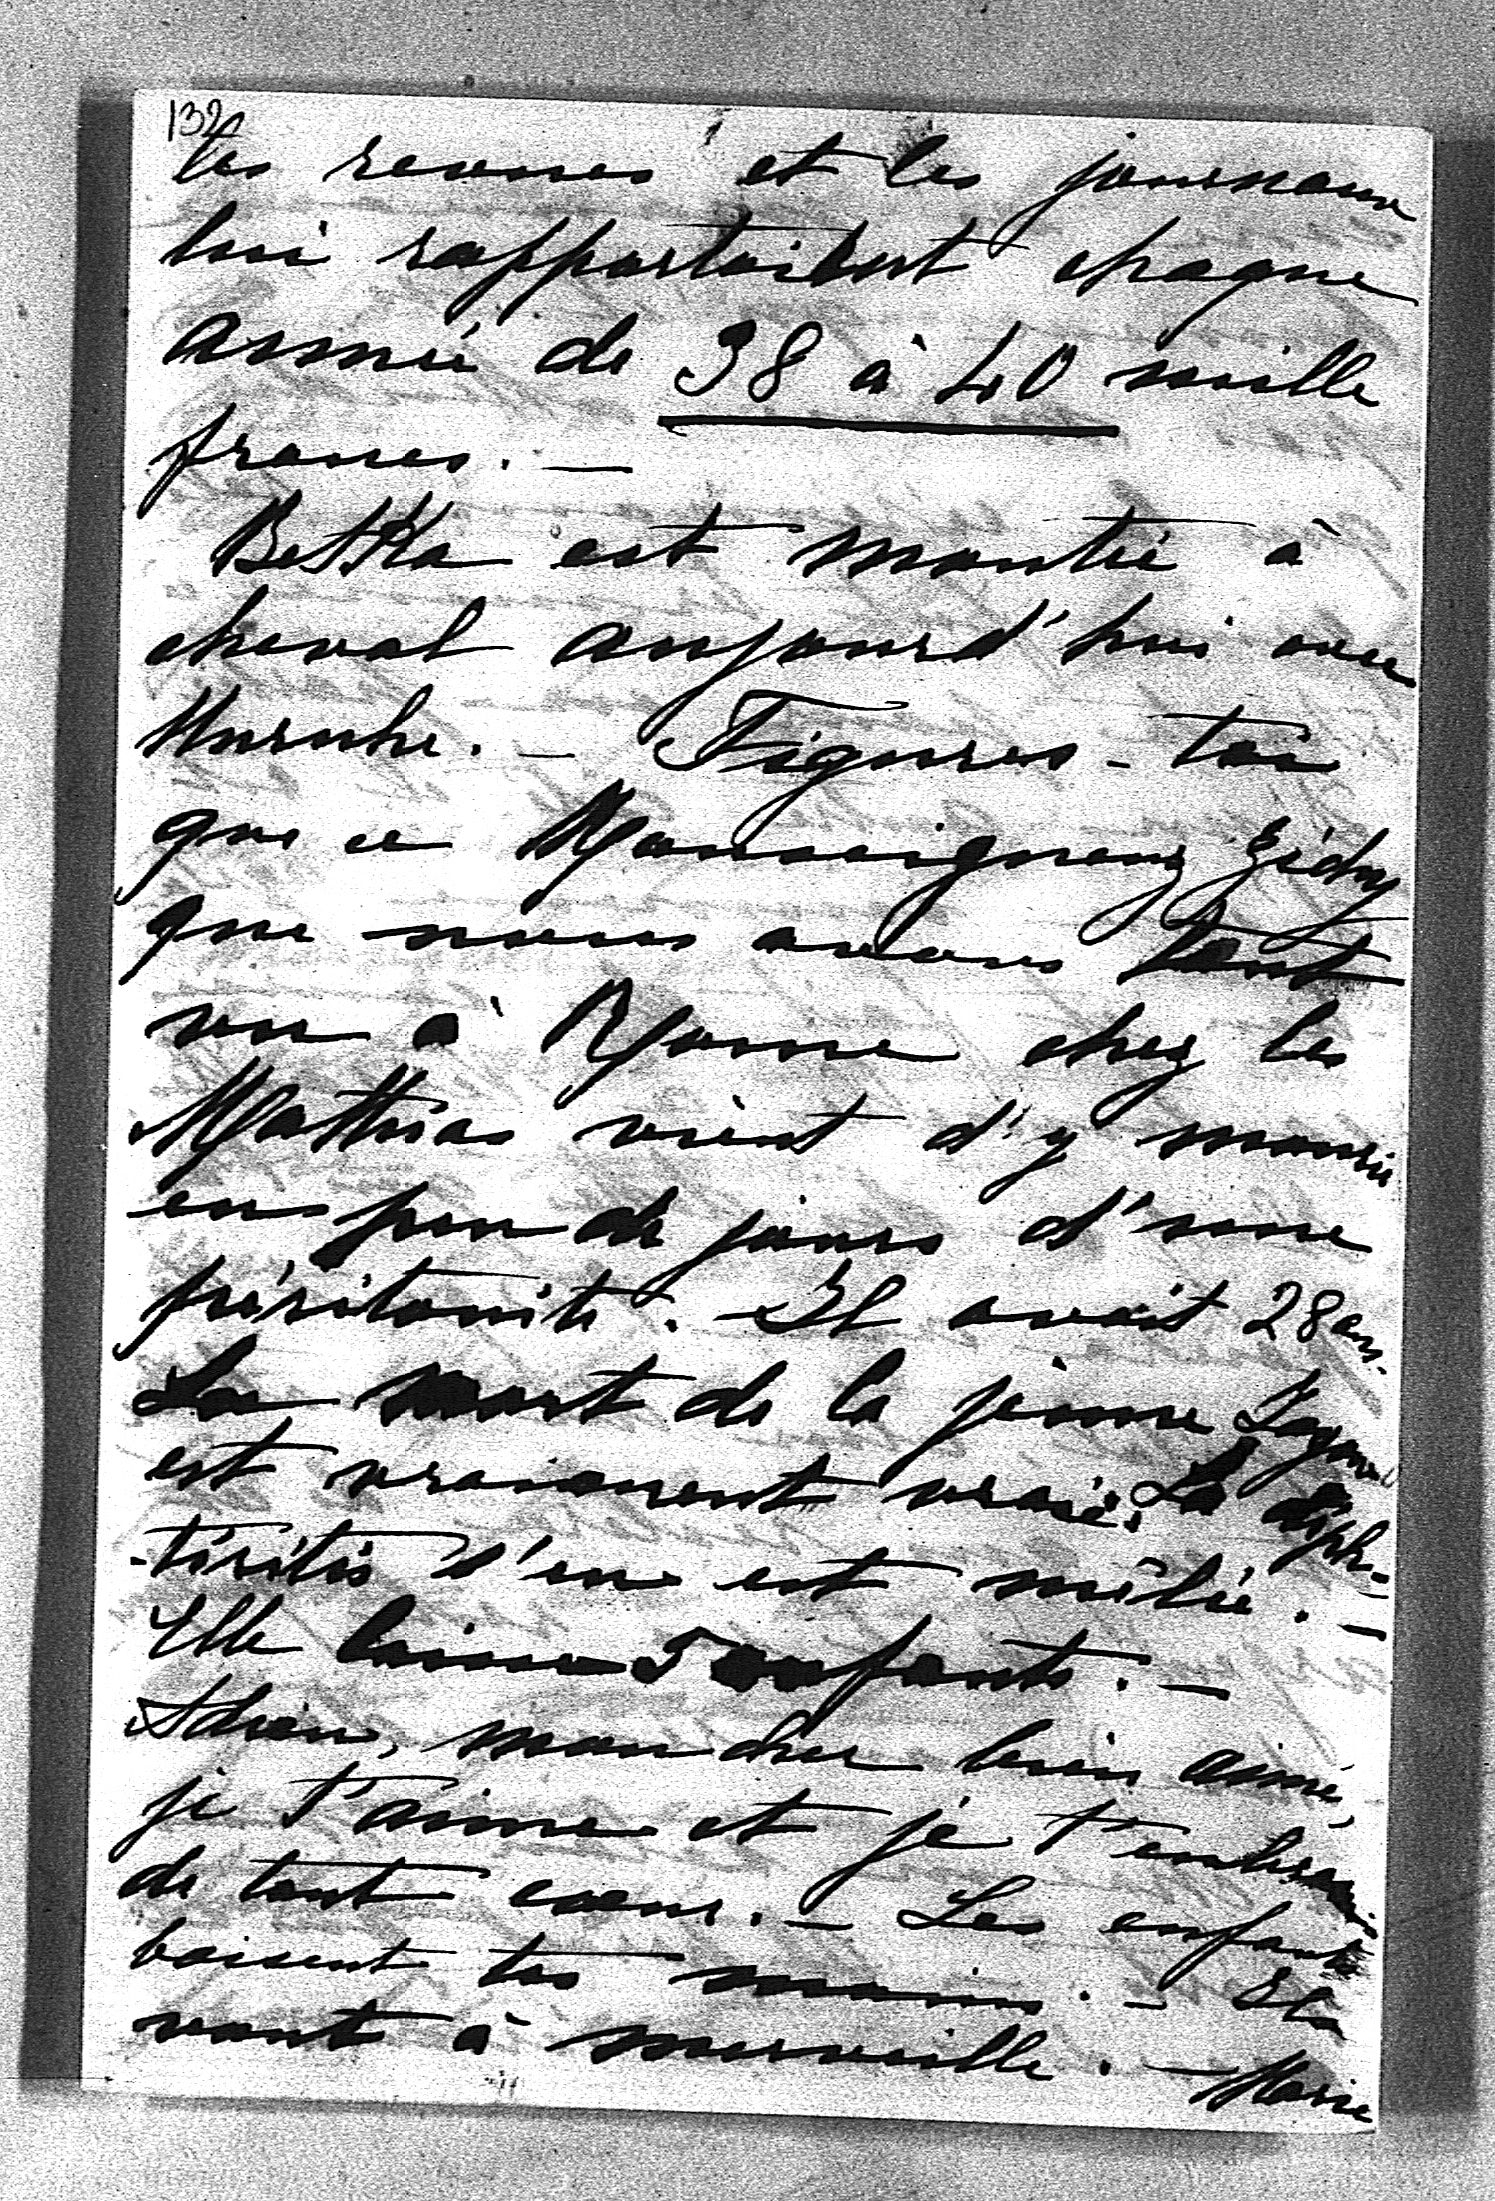 132
les revues et les journaux
lui rapportaient chaque
année de 38 à 40 mille
francs. —
Betka est montée à
cheval aujourd'hui avec
— Figures-toi
que ce Monseigneur
que nous avons tant
vu à Rome chez les
Mathias vient d'y mourir
en peu de jours d'une
péritonite. — Il avait 28 ans.
La mort de la jeune
est vraiement vraie. La diph-
-téritis s'en est mêlée. —
Elle laisse 5 enfants. —
Adrien, mon cher bien aimé,
je t'aime et je t'embrasse
de tout coeur. — Les enfants
baisent tes mains. — Ils
vont à merveille. — Marie